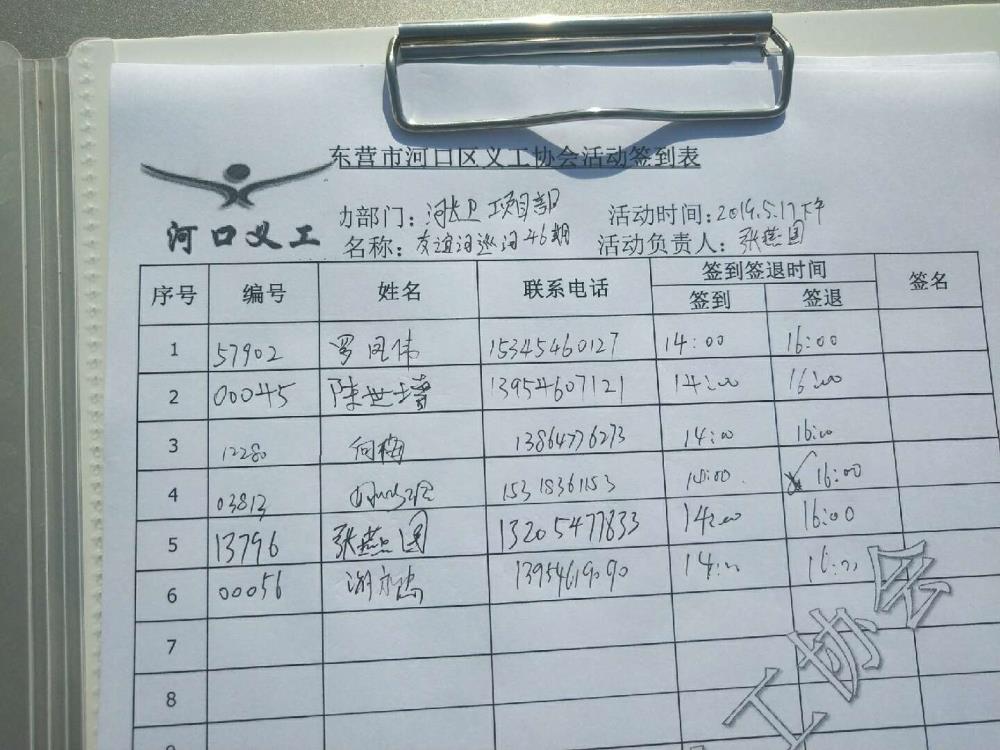 东营市河口区义工协会活动签到表
河口义工
部门： 项目部 活动时间：2019.5.17下午
名称：友谊河巡河46期 活动负责人：张燕国
序号 编号 姓名 联系电话 签到签退时间 签名
签到 签退
1 57902 罗 伟 15345460127 14:00 16:00
2 00045 陈世 13954607121 14:00 16:00
3 12280 何梅 13864776273 14:00 16:00
4 03813 15318361153 14:00 16:00
5 13796 张燕国 13205477833 14:00 16:00
6 00056 谢 13954619090 14:00 16:00
7
8
工协会